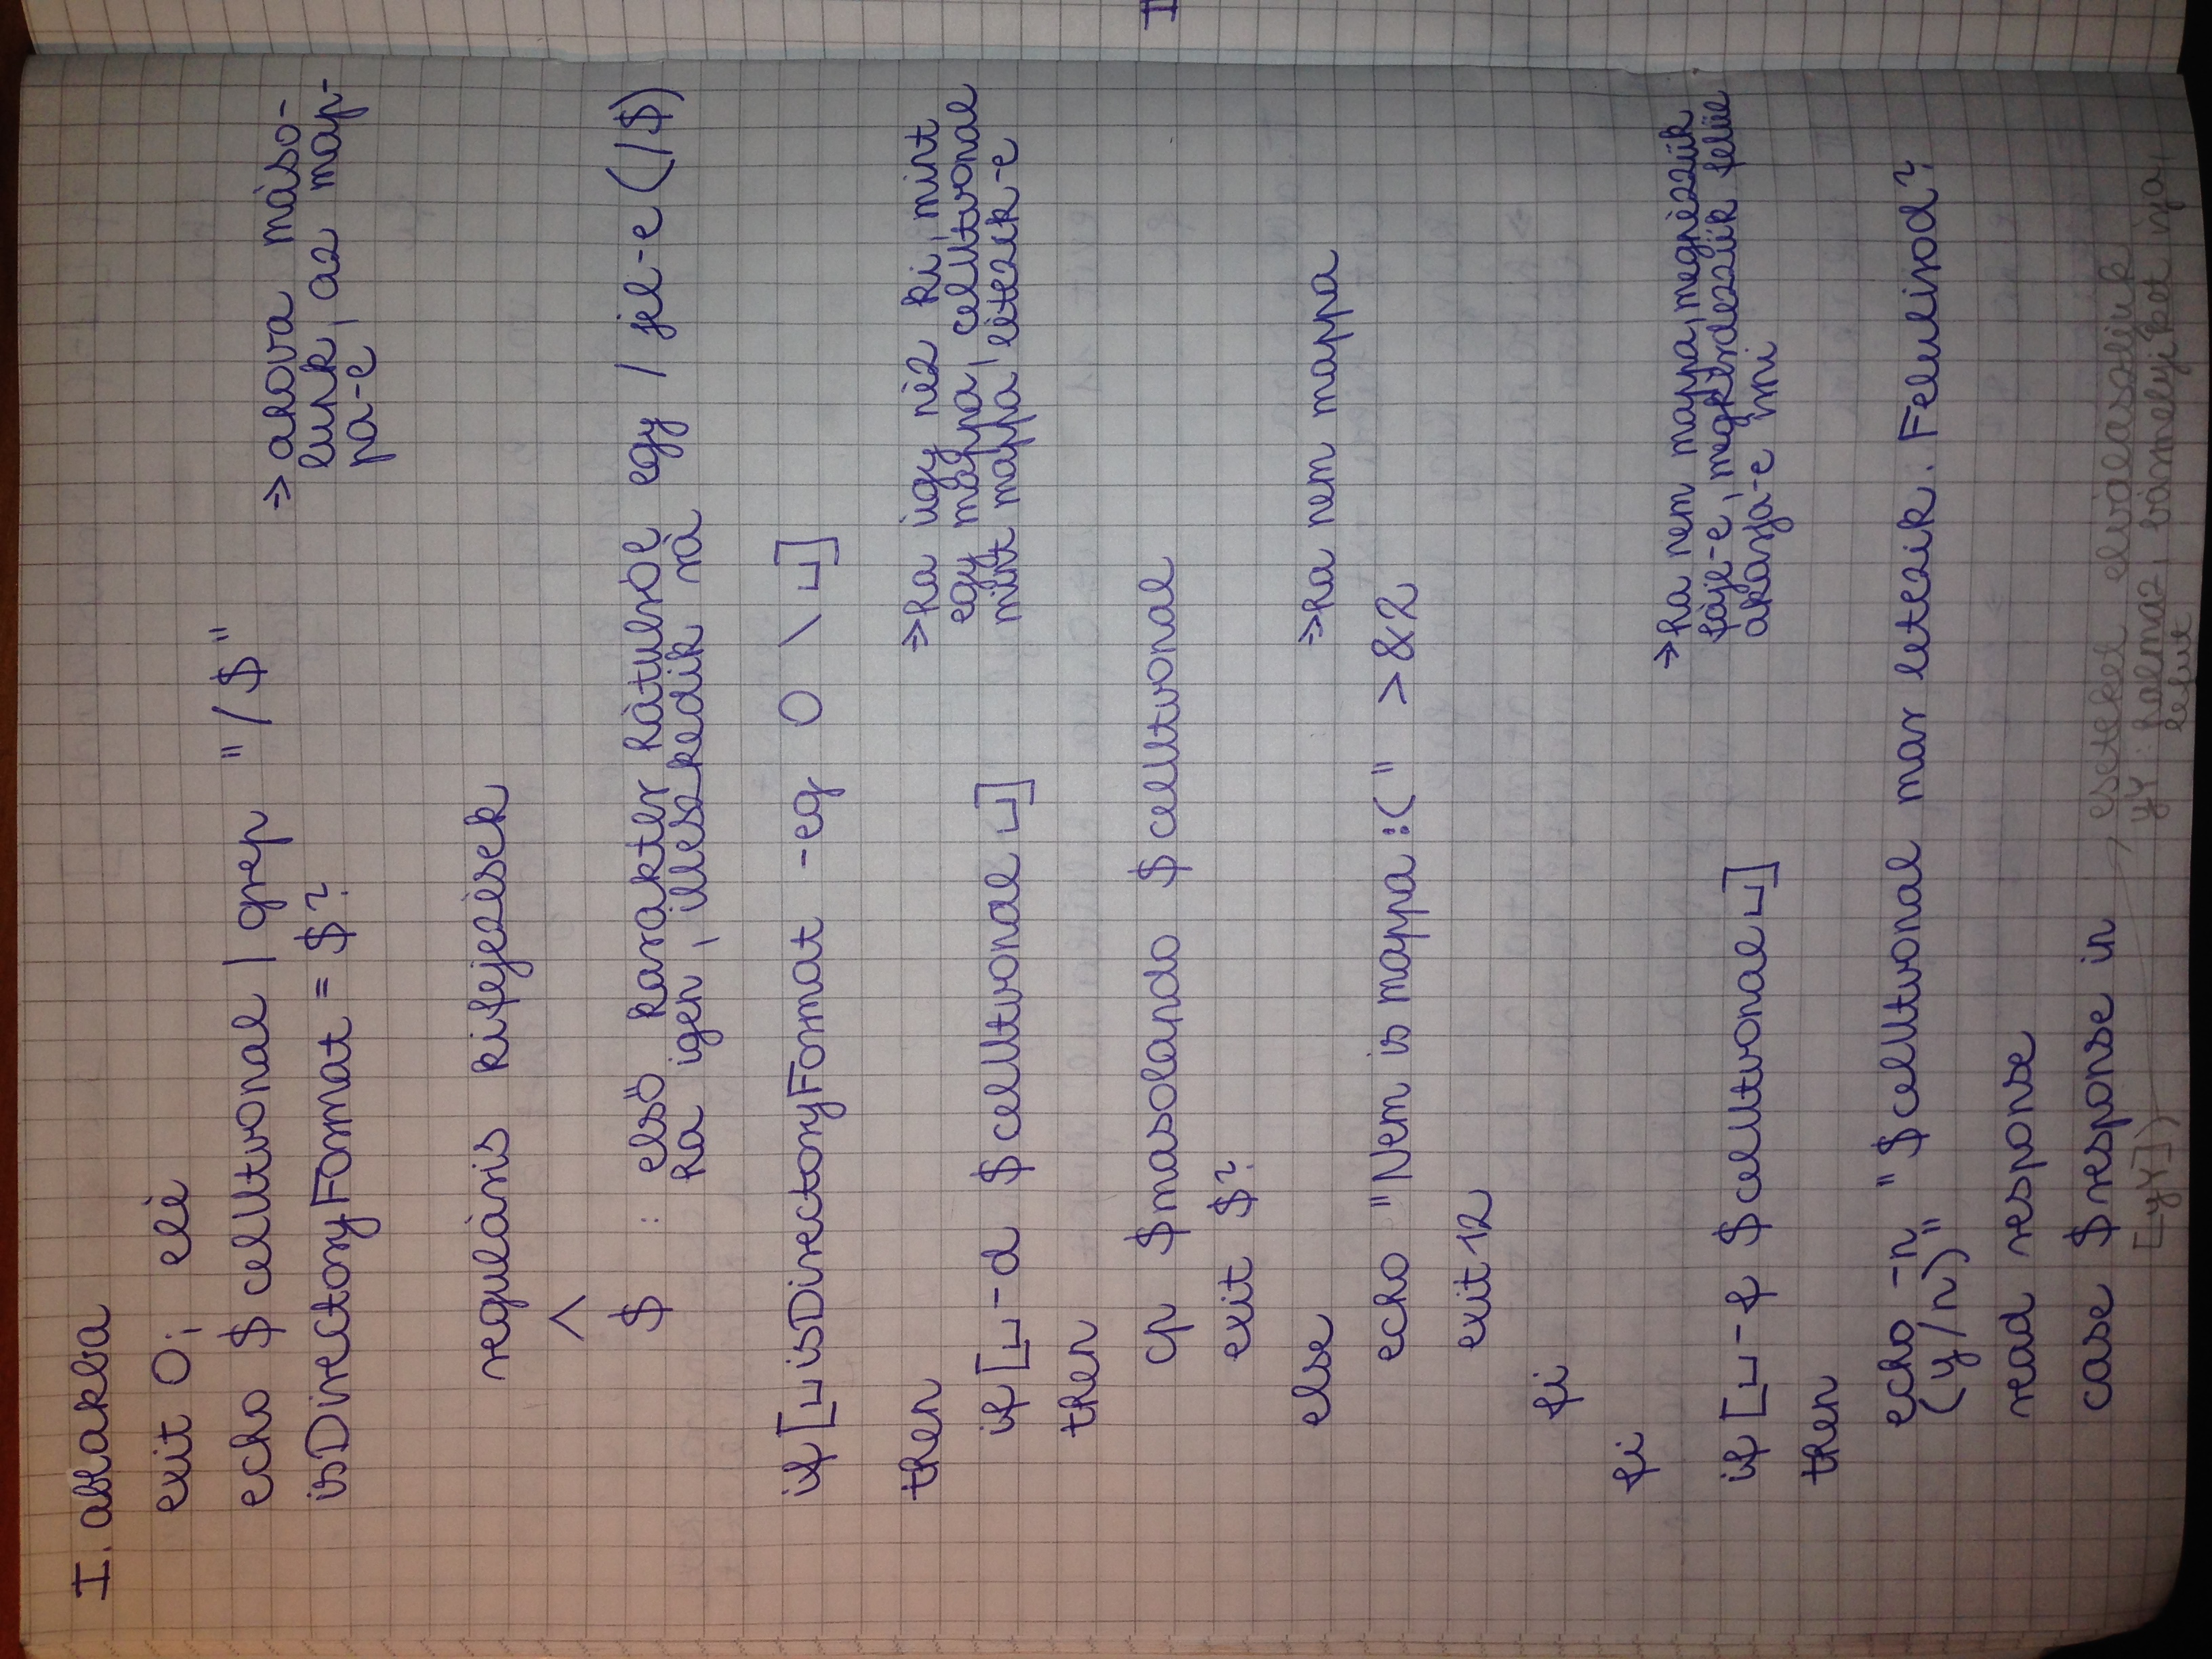 I. ablakba
exit 0; elé
echo $celUtvonal | grep "/$"
isDirectoryFormat = $?
=> ahova máso-
lunk, az map-
pa-e
reguláris kifejezések
^
$ : első karakter hátulról egy / jel-e (/$)
ha igen, illeszkedik rá
if [␣isDirectoryFormat -eq 0 \␣]
then
=> ha úgy néz ki, mint
egy mappa, celUtvonal
mint mappa létezik-e
if [␣-d $celUtvonal␣]
then
cp $masolando $celUtvonal
exit $?
else
=> ha nem mappa
echo "Nem is mappa :(" >&2
exit 12
fi
fi
=> ha nem mappa, megnézzük
fáje-e, megkérdezzük felül
akarja-e írni
if [␣-f $celUtvonal␣]
then
echo -n "$celUtvonal mar letezik. Felulirod?
(y/n)"
read response
case $response in
eseteket elválasztjuk
[yY])
yY: halmaz, bármelyiket írja,
lefut
I